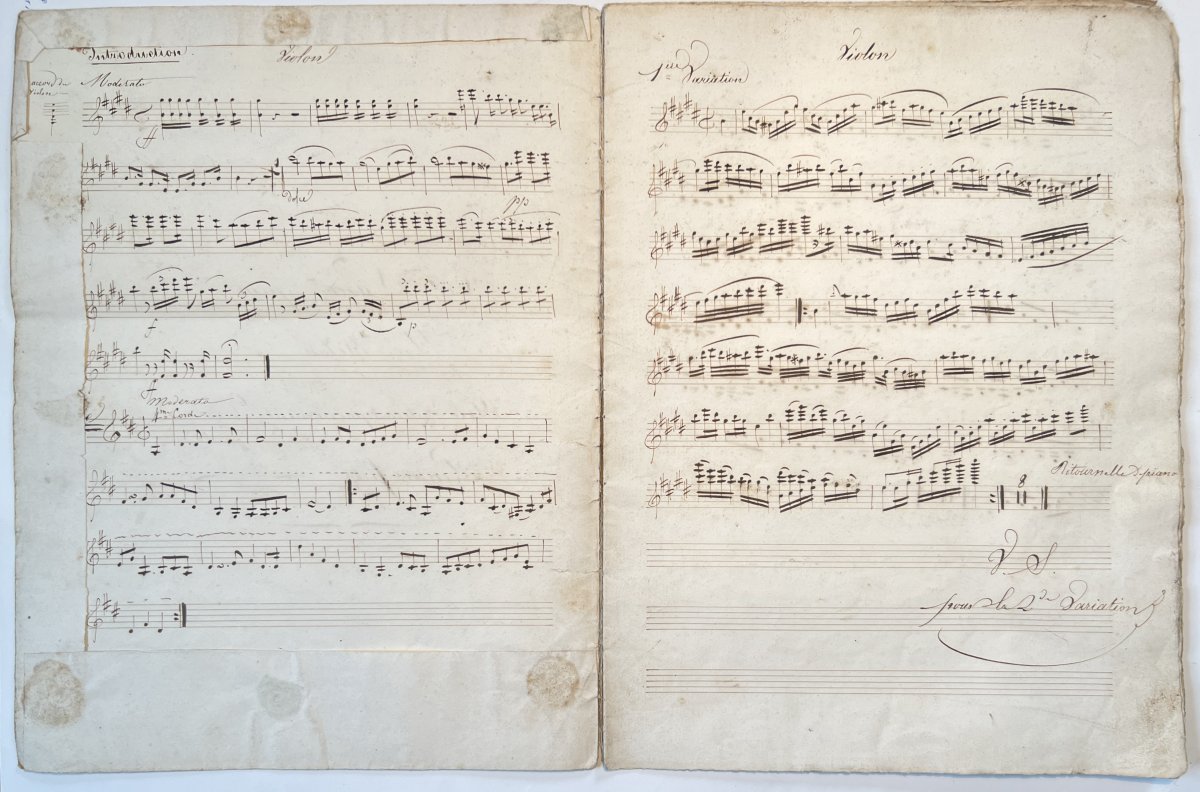 Introduction
Violon
accord du
Violon
Moderato
ff
dolce
pp
f
p
Moderato
4me Corde
Violon
1ere Variation
Ritournelle D. piano
8
V. S.
pour la 2de Variation